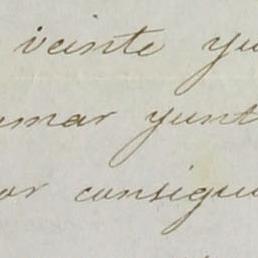 veinte yu
mar yunt
or consigu